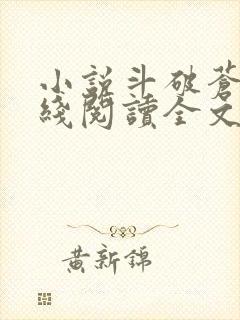 小說斗破蒼
綫閱讀全文
黃新錦